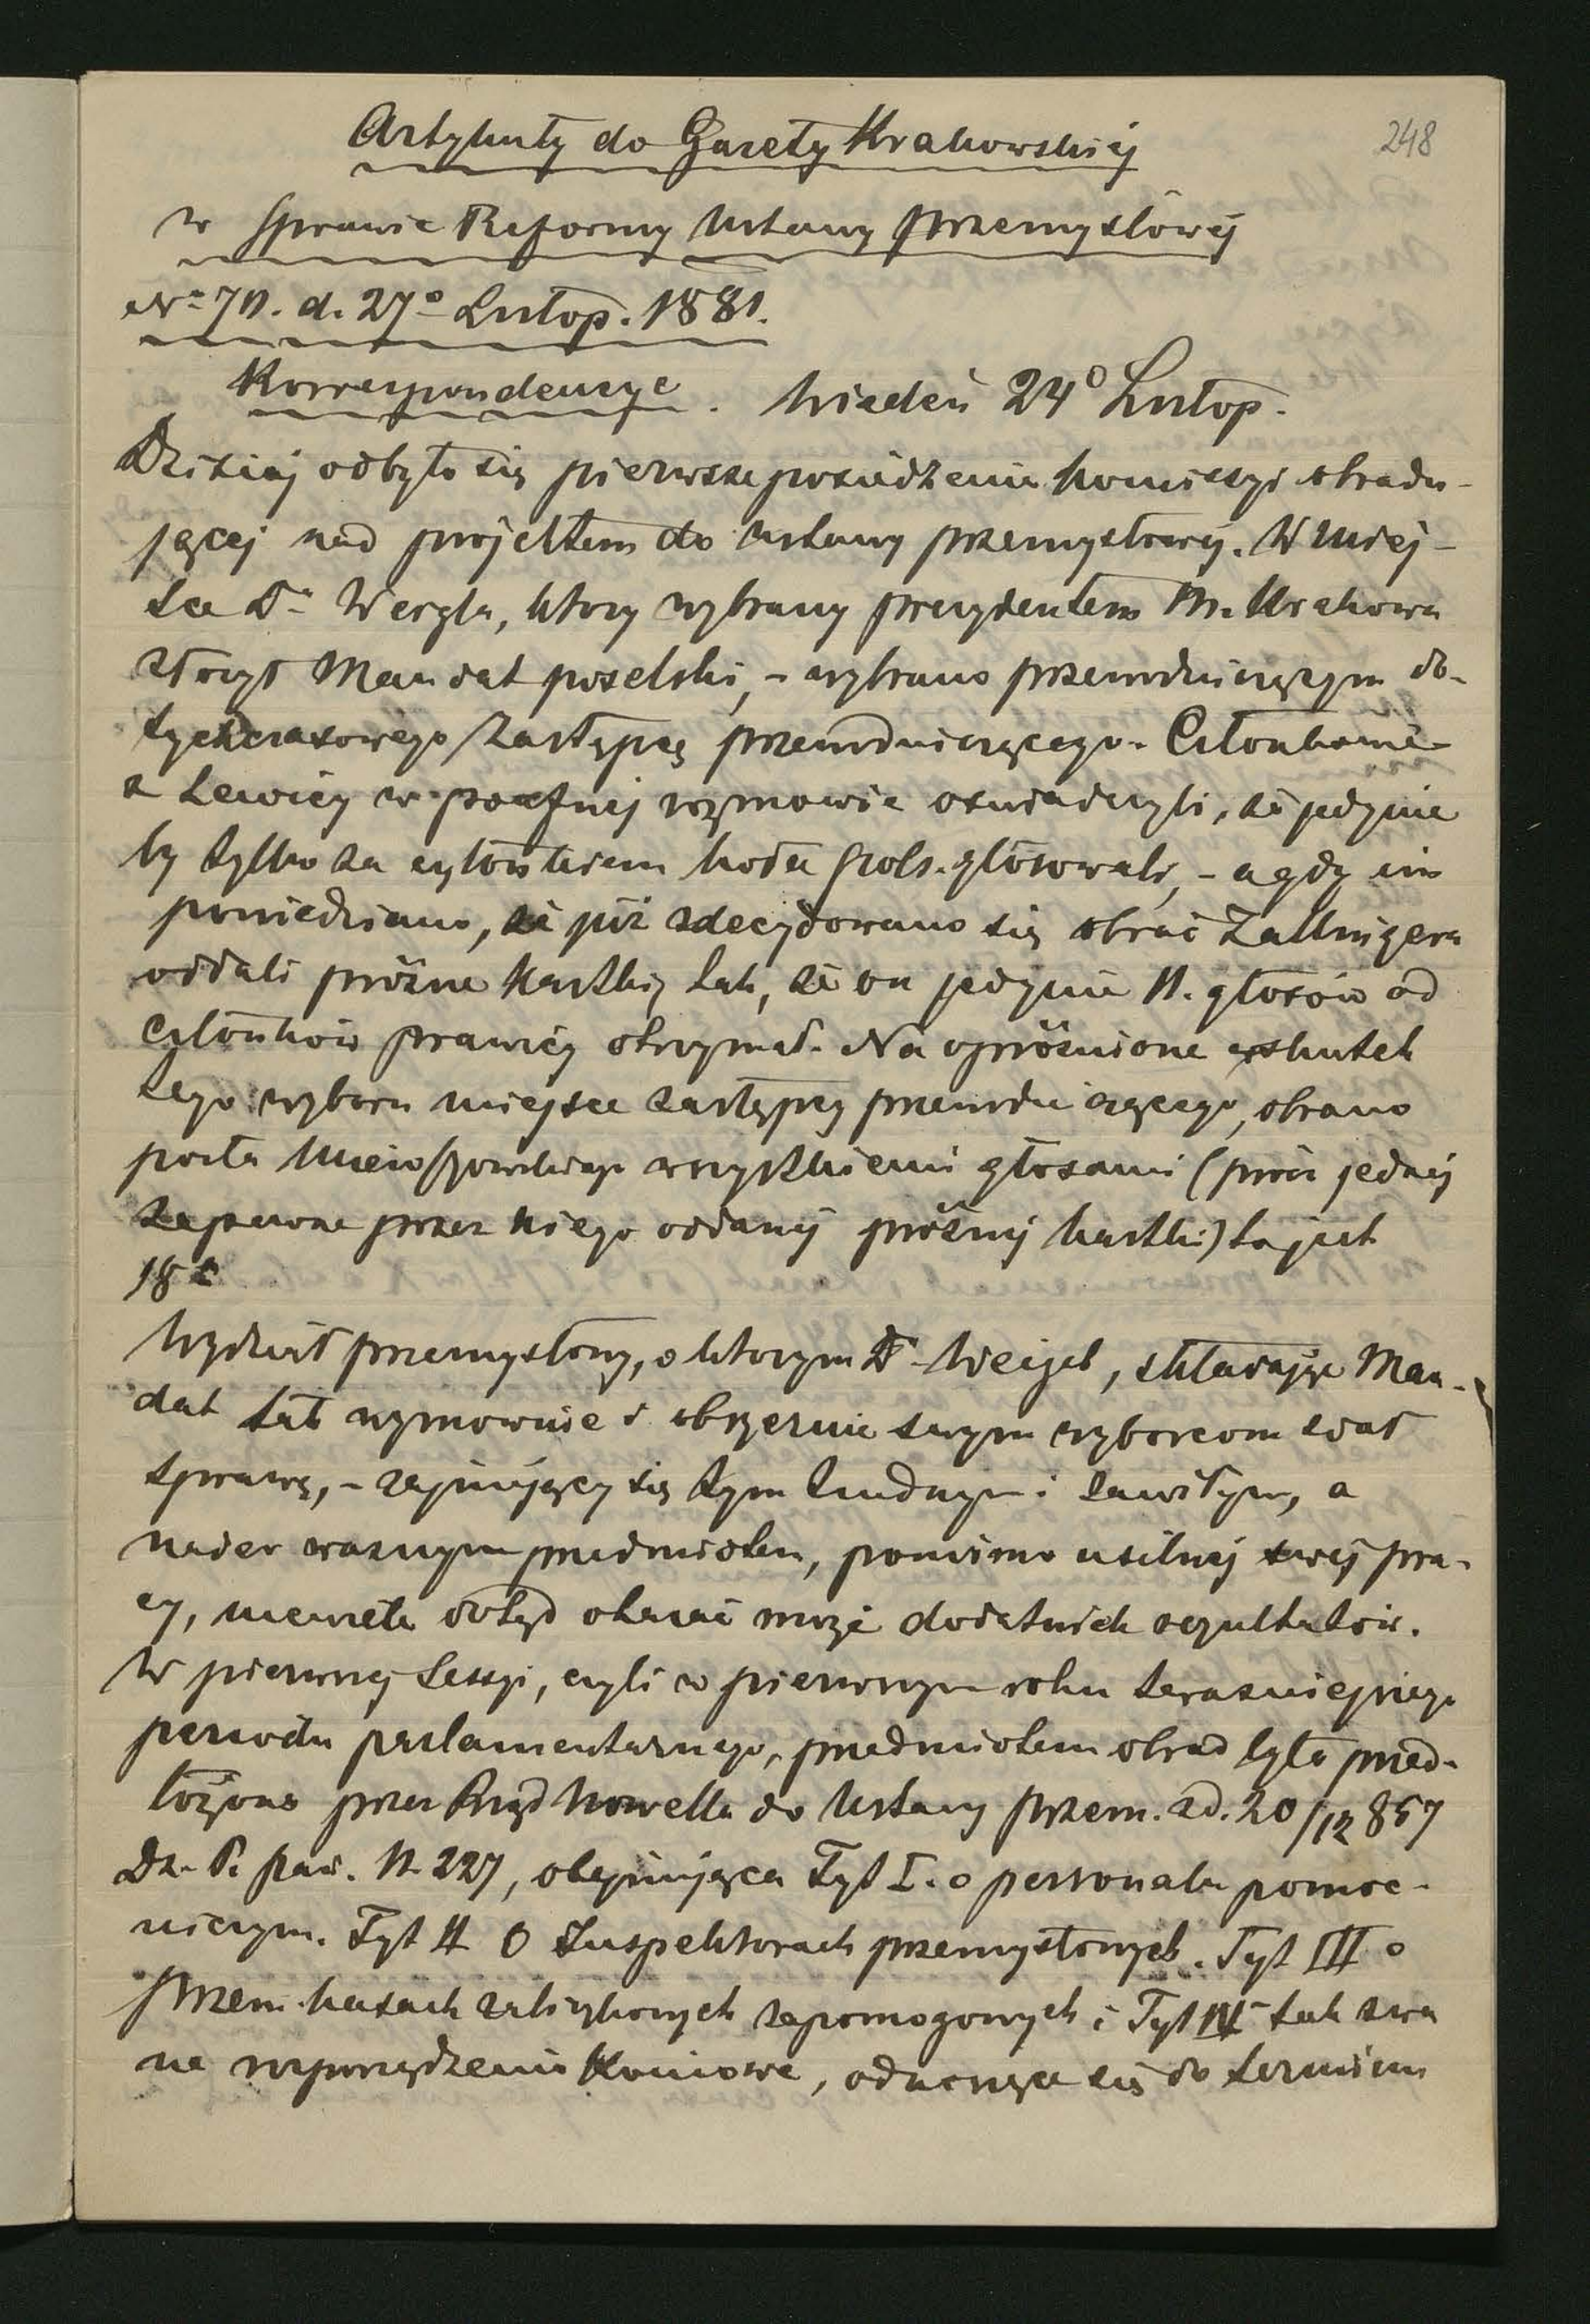 248
Artykuły do Gazety Krakowskiéj
w Sprawie Reformy Ustawy przemysłowéj
Nro 70. d. 27o Listop. 1881.
Korrespondencye. Wiedeń 24o Listop.
Dzisiaj odbyło się pierwsze posiedzenie komissyi obradu-
jącej nad projektem do ustawy przemysłowéj. W miej-
sce Dra Weigla, który wybrany prezydentem M. Krakowa
złożył Mandat poselski, - wybrano przewodniczącym do-
tychczasowego Zastępcę przewodniczącego. Członkowie
z Lewicy w poufnej rozmowie oświadczyli, że jedynie
by tylko za członkiem koła pols. głosowali, - a gdy im
powiedziano, że już zdecydowano się obrać Zallingera
oddali próżne kartki, tak, że on jedynie 11. głosów od
członków prawicy otrzymał. Na opróżnione wskutek
tego wyboru miejsce zastępcy przewodniczącego, obrano
posła Mieroszowskiego wszystkiemi głosami (prócz jednéj
zapewne przez niego oddanéj próżnéj kartki) to jest
18
Wydział przemysłowy, o którym Dr Weigel, składając Man-
dat tak wymownie i obszernie swym wyborcom zdał
sprawę, - zajmujący się tym trudnym i zawiłym, a
nader ważnym przedmiotem, pomimo usilnéj swéj pra-
cy, niewiele dotąd okazać może dodatnich rezultatów.
W pierwszej Sessyi, czyli w pierwszym roku teraźniejszego
peryodu parlamentarnego, przedmiotem obrad była przed-
łożona przez Rząd Nowella do Ustawy przem. zd. 20/12 857
Dz. P. pań. N. 227, obejmująca Tyt I. o personalu pomoc-
niczym. Tyt II O Inspektorach przemysłowych. Tyt III o
przem. kasach zaliczkowych zapomogowych i Tyt IV tak zwa
ne rozporządzenia Końcowe, odnoszące się do terminu